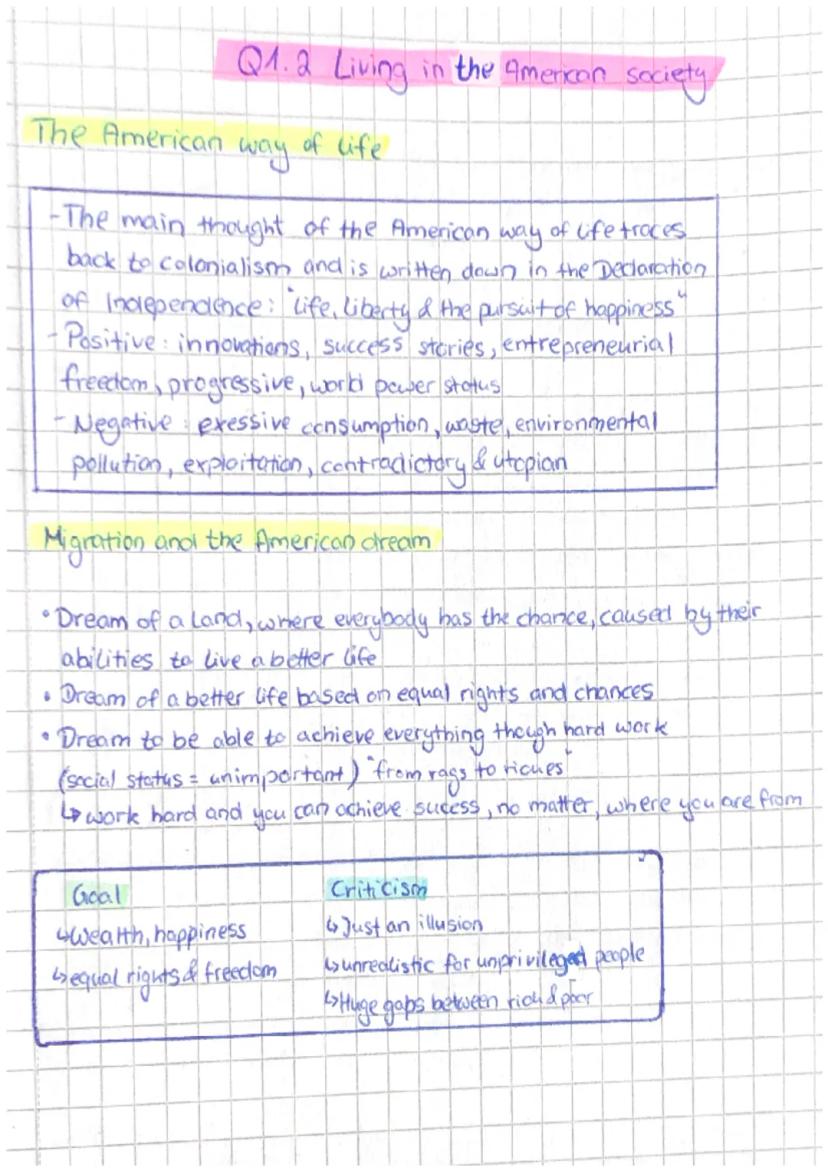 Q1.2 Living in the American society
The American way of life
- The main thought of the American way of life traces
back to colonialism and is written down in the Declaration
of Independence: "life, liberty & the pursuit of happiness"
- Positive: innovations, success stories, entrepreneurial
freedom, progressive, world power status
- Negative: exessive consumption, waste, environmental
pollution, exploitation, contradictory & utopian
Migration and the American dream
• Dream of a land, where everybody has the chance, caused by their
abilities to live a better life
• Dream of a better life based on equal rights and chances
• Dream to be able to achieve everything though hard work
(social status = unimportant) "from rags to riches"
↳ work hard and you can achieve sucess, no matter, where you are from
Goal
↳ Wealth, happiness
↳ equal rights & freedom
Criticism
↳ Just an illusion
↳ unrealistic for unprivileged people
↳ Huge gaps between rich & poor